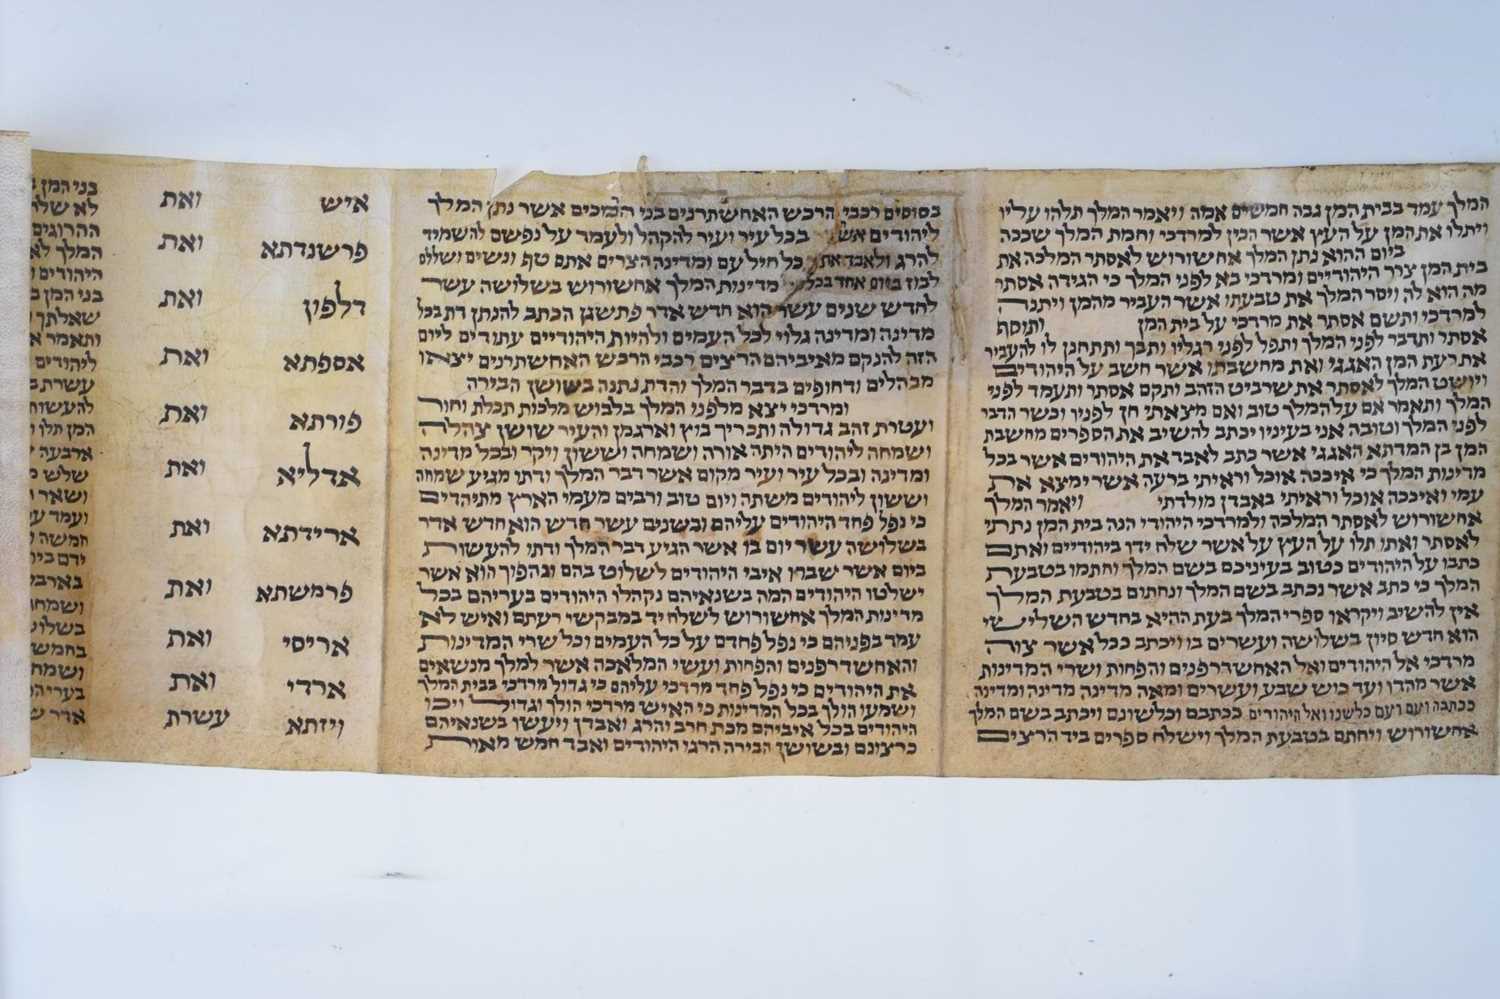 המלך עמד בבית המן גבה חמשים אמה ויאמר המלך תלהו עליו
ויתלו את המן על העץ אשר הכין למרדכי וחמת המלך שככה
ביום ההוא נתן המלך אחשורוש לאסתר המלכה את
בית המן צרר היהודיים ומרדכי בא לפני המלך כי הגידה אסתר
מה הוא לה ויסר המלך את טבעתו אשר העביר מהמן ויתנה
למרדכי ותשם אסתר את מרדכי על בית המן ותוסף
אסתר ותדבר לפני המלך ותפל לפני רגליו ותבך ותתחנן לו להעביר
את רעת המן האגגי ואת מחשבתו אשר חשב על היהודים
ויושט המלך לאסתר את שרביט הזהב ותקם אסתר ותעמד לפני
המלך ותאמר אם על המלך טוב ואם מצאתי חן לפניו וכשר הדבר
לפני המלך וטובה אני בעיניו יכתב להשיב את הספרים מחשבת
המן בן המדתא האגגי אשר כתב לאבד את היהודים אשר בכל
מדינות המלך כי איככה אוכל וראיתי ברעה אשר ימצא את
עמי ואיככה אוכל וראיתי באבדן מולדתי ויאמר המלך
אחשורוש לאסתר המלכה ולמרדכי היהודי הנה בית המן נתתי
לאסתר ואתו תלו על העץ על אשר שלח ידו ביהודיים ואתם
כתבו על היהודים כטוב בעיניכם בשם המלך וחתמו בטבעת
המלך כי כתב אשר נכתב בשם המלך ונחתום בטבעת המלך
אין להשיב ויקראו ספרי המלך בעת ההיא בחדש השלישי
הוא חדש סיון בשלושה ועשרים בו ויכתב ככל אשר צוה
מרדכי אל היהודים ואל האחשדרפנים והפחות ושרי המדינות
אשר מהדו ועד כוש שבע ועשרים ומאה מדינה מדינה ומדינה
ככתבה ועם ועם כלשנו ואל היהודים ככתבם וכלשונם ויכתב בשם המלך
אחשורוש ויחתם בטבעת המלך וישלח ספרים ביד הרצים
בסוסים רכבי הרכש האחשתרנים בני הרמכים אשר נתן המלך
ליהודים אשר בכל עיר ועיר להקהל ולעמד על נפשם להשמיד
להרג ולאבד את כל חיל עם ומדינה הצרים אתם טף ונשים ושללם
לבוז ביום אחד בכל מדינות המלך אחשורוש בשלושה עשר
לחדש שנים עשר הוא חדש אדר פתשגן הכתב להנתן דת בכל
מדינה ומדינה גלוי לכל העמים ולהיות היהודיים עתודים ליום
הזה להנקם מאיביהם הרצים רכבי הרכש האחשתרנים יצאו
מבהלים ודחופים בדבר המלך והדת נתנה בשושן הבירה
ומרדכי יצא מלפני המלך בלבוש מלכות תכלת וחור
ועטרת זהב גדולה ותכריך בוץ וארגמן והעיר שושן צהלה
ושמחה ליהודים היתה אורה ושמחה וששון ויקר ובכל מדינה
ומדינה ובכל עיר ועיר מקום אשר דבר המלך ודתו מגיע שמחה
וששון ליהודים משתה ויום טוב ורבים מעמי הארץ מתיהדים
כי נפל פחד היהודים עליהם ובשנים עשר חדש הוא חדש אדר
בשלושה עשר יום בו אשר הגיע דבר המלך ודתו להעשות
ביום אשר שברו איבי היהודים לשלוט בהם ונהפוך הוא אשר
ישלטו היהודים המה בשנאיהם נקהלו היהודים בעריהם בכל
מדינות המלך אחשורוש לשלח יד במבקשי רעתם ואיש לא
עמד בפניהם כי נפל פחדם על כל העמים וכל שרי המדינות
והאחשדרפנים והפחות ועשי המלאכה אשר למלך מנשאים
את היהודים כי נפל פחד מרדכי עליהם כי גדול מרדכי בבית המלך
ושמעו הולך בכל המדינות כי האיש מרדכי הולך וגדול ויכו
היהודים בכל איביהם מכת חרב והרג ואבדן ויעשו בשנאיהם
כרצונם ובשושן הבירה הרגו היהודים ואבד חמש מאות
איש ואת
פרשנדתא ואת
דלפון ואת
אספתא ואת
פורתא ואת
אדליא ואת
ארידתא ואת
פרמשתא ואת
אריסי ואת
ארדי ואת
ויזתא עשרת
בני המן
לא שלחו
ההרוגים
המלך
היהודים
בני המן
שאלתך
ותאמר
ליהודים
עשרת
להעשות
המן תלו
ארבעה
שלש
ושאר
ועמד
חמשה
ידם
בארבעה
ושמחה
בשלושה
בחמשה
ושמחה
בעריהם
אדר